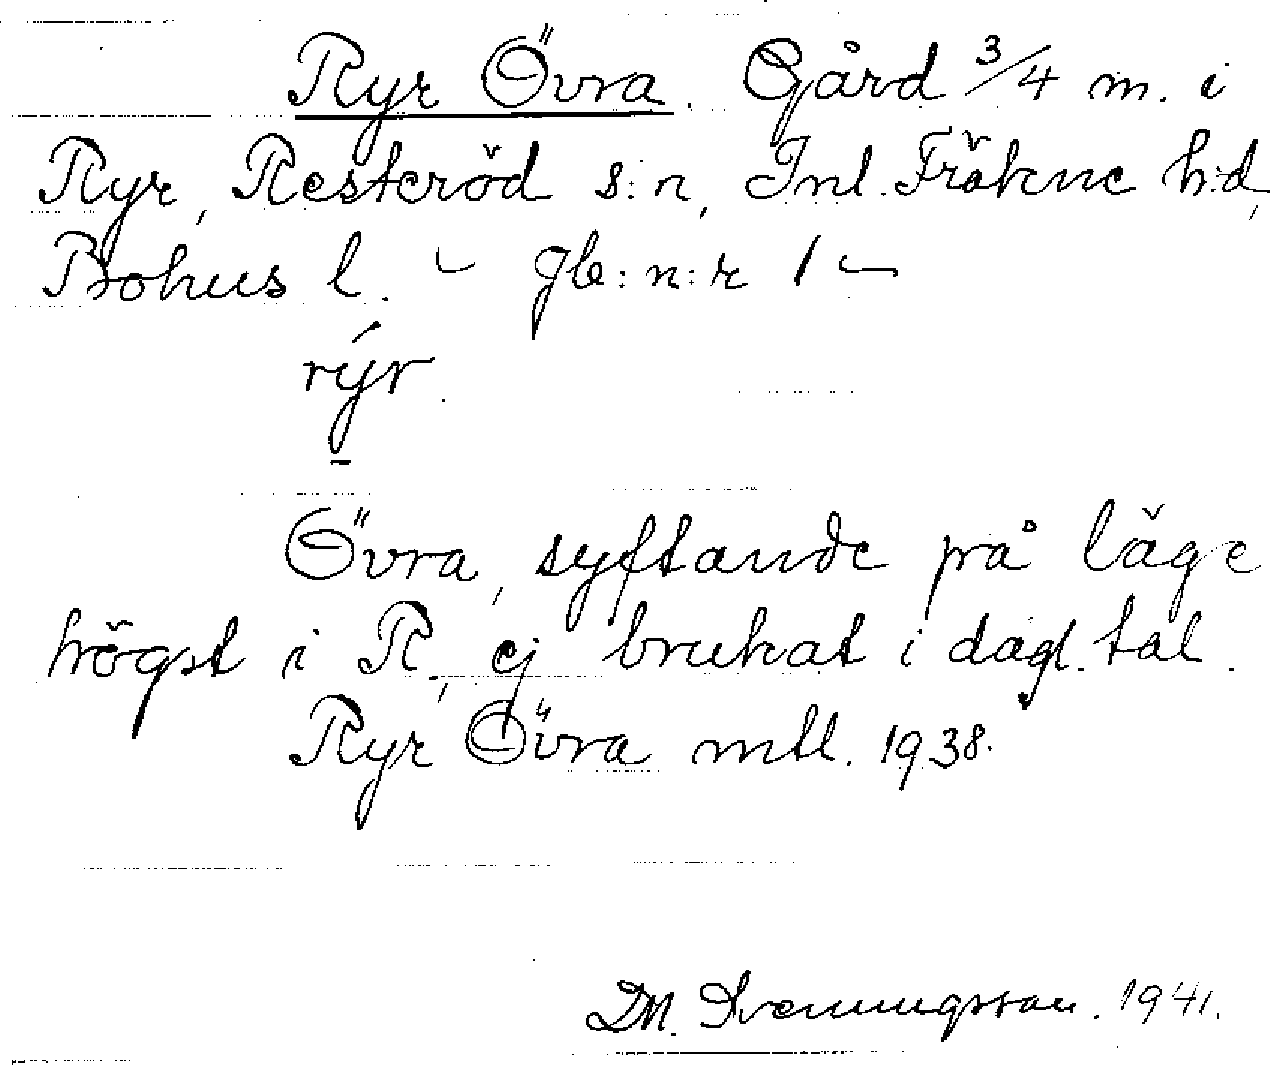 Ryr Övra. Gård 3/4 m. i
Ryr, Resteröd s:n, Inl. Fräkne h:d,
Bohus l. – Jb: n:r 1 –
rýr.
Övra, syftande på läge
högst i R., ej brukat i dagl. tal.
Ryr Övra mtl. 1938.
DM. Svenningsson. 1941.